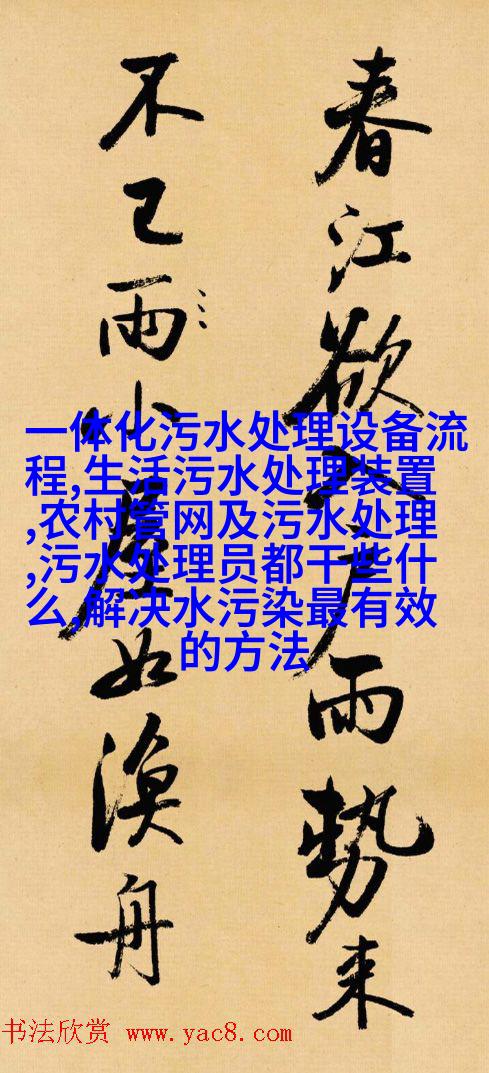 春江欲入戶雨勢来
不已雨小屋如漁舟
一体化污水处理设备流
程,生活污水处理装置
,农村管网及污水处理
,污水处理员都干些什
么,解决水污染最有效
的方法
书法欣赏 www.yac8.com